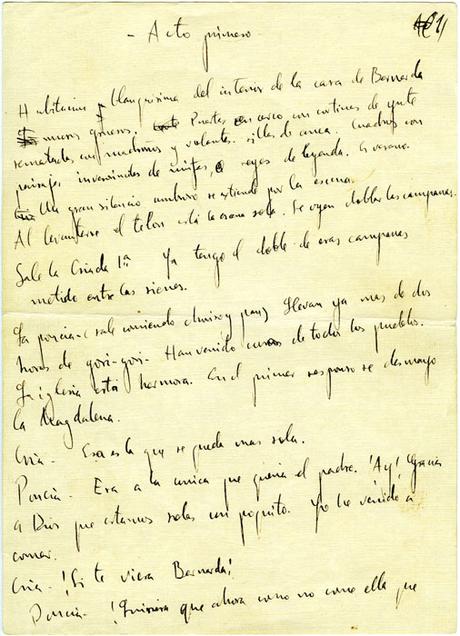 - Acto primero -
Habitación blanquísima del interior de la casa de Bernarda
muros gruesos. Puertas en arco con cortinas de yute
rematadas con madroños y volantes. sillas de anea. Cuadros con
paisajes inverosímiles de ninfas, o reyes de leyenda. Es verano.
Un gran silencio umbroso se extiende por la escena.
Al levantarse el telon está la escena sola. Se oyen doblar las campanas.
Sale la Criada 1ª Ya tengo el doble de esas campanas
metido entre las sienes.
La poncia - (sale comiendo chorizo y pan) Llevan ya mas de dos
horas de gori-gori. Han venido curas de todos los pueblos.
La iglesia está hermosa. En el primer responso se desmayó
la Magdalena.
Cria. - Esa es la que se queda mas sola.
Poncia. - Era a la unica que queria el padre. ¡Ay! ¡Gracias
a Dios que estamos solas un poquito. Yo he venido a
comer.
Cria - ¡Si te viera Bernarda!
Poncia - ¡Quisiera que ahora como no come ella que